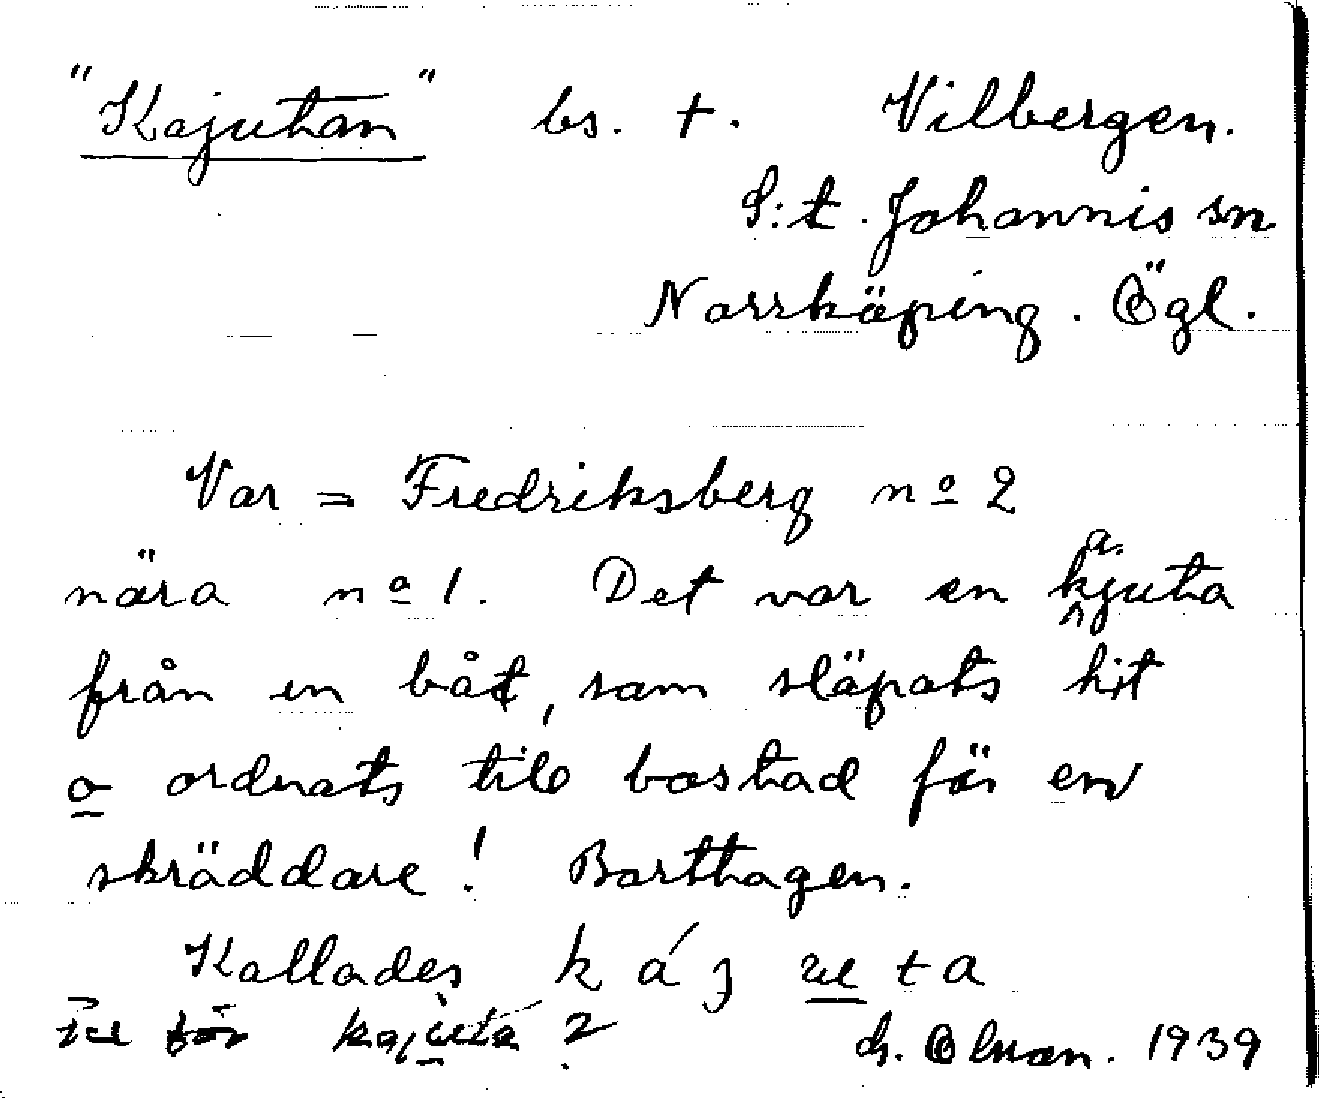 "Kajutan" bs. †. Vilbergen.
S:t. Johannis sn
Norrköping. Ögl.
Var = Fredriksberg no 2
nära no 1. Det var en kajuta
från en båt, som släpats hit
o ordnats till bostad för en
skräddare! Borttagen.
Kallades k á j u t a
för kajuta ?
1939